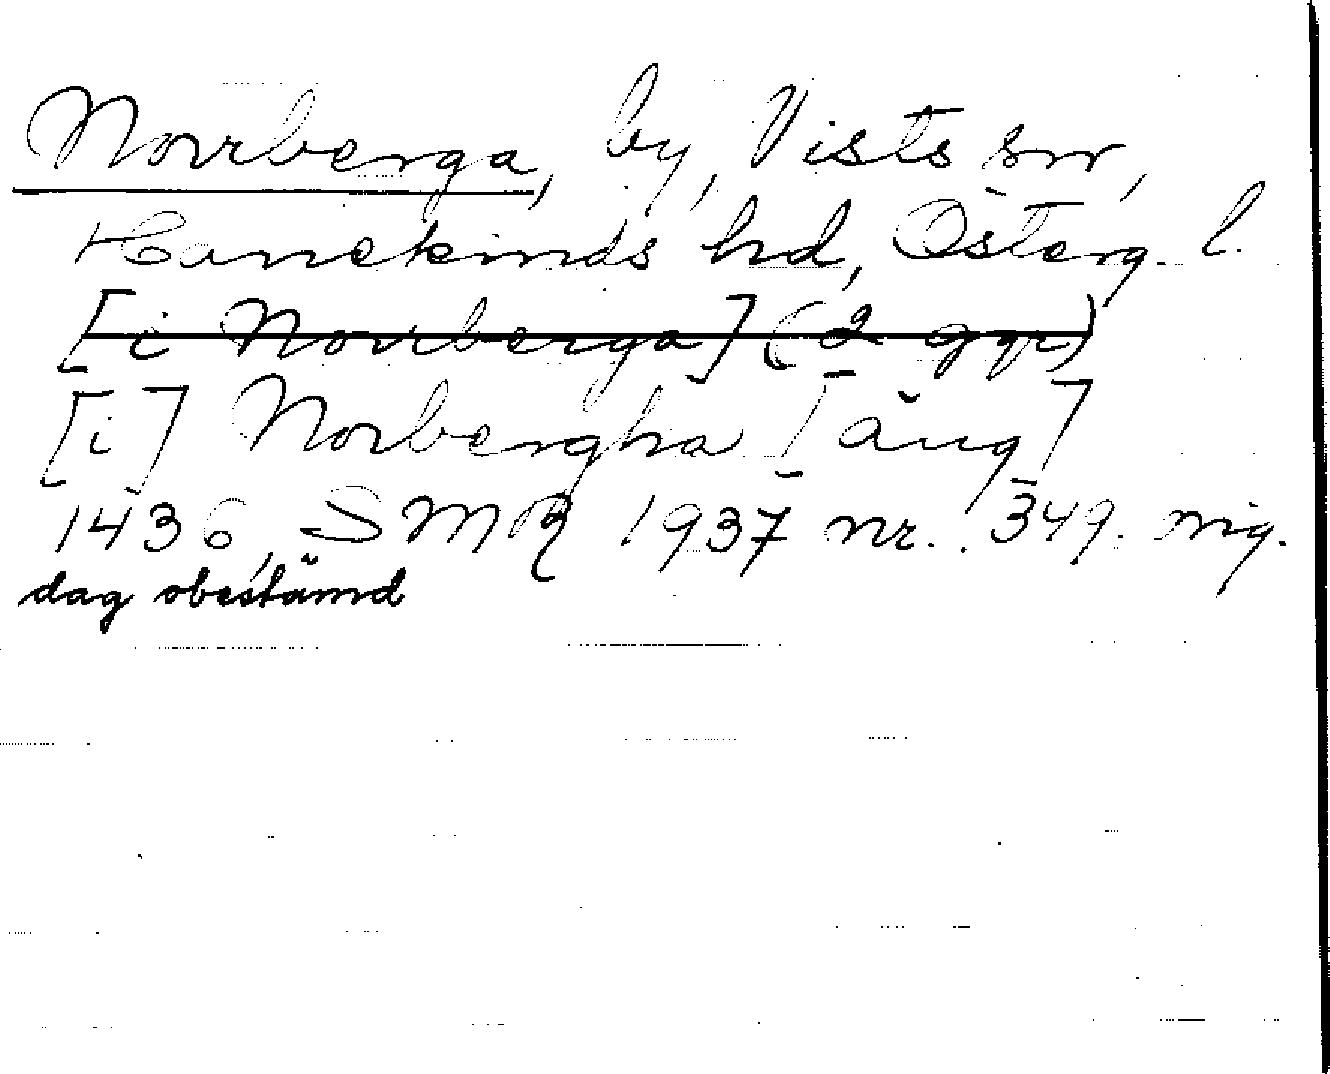 Norrberga, by, Vists sn,
Hanekinds hd, Österg. l.
[i Norrberga] (2 ggr)
[i] Norbergha [ǎng]
1436, SMR 1937 nr. 349. mig.
dag obestämd